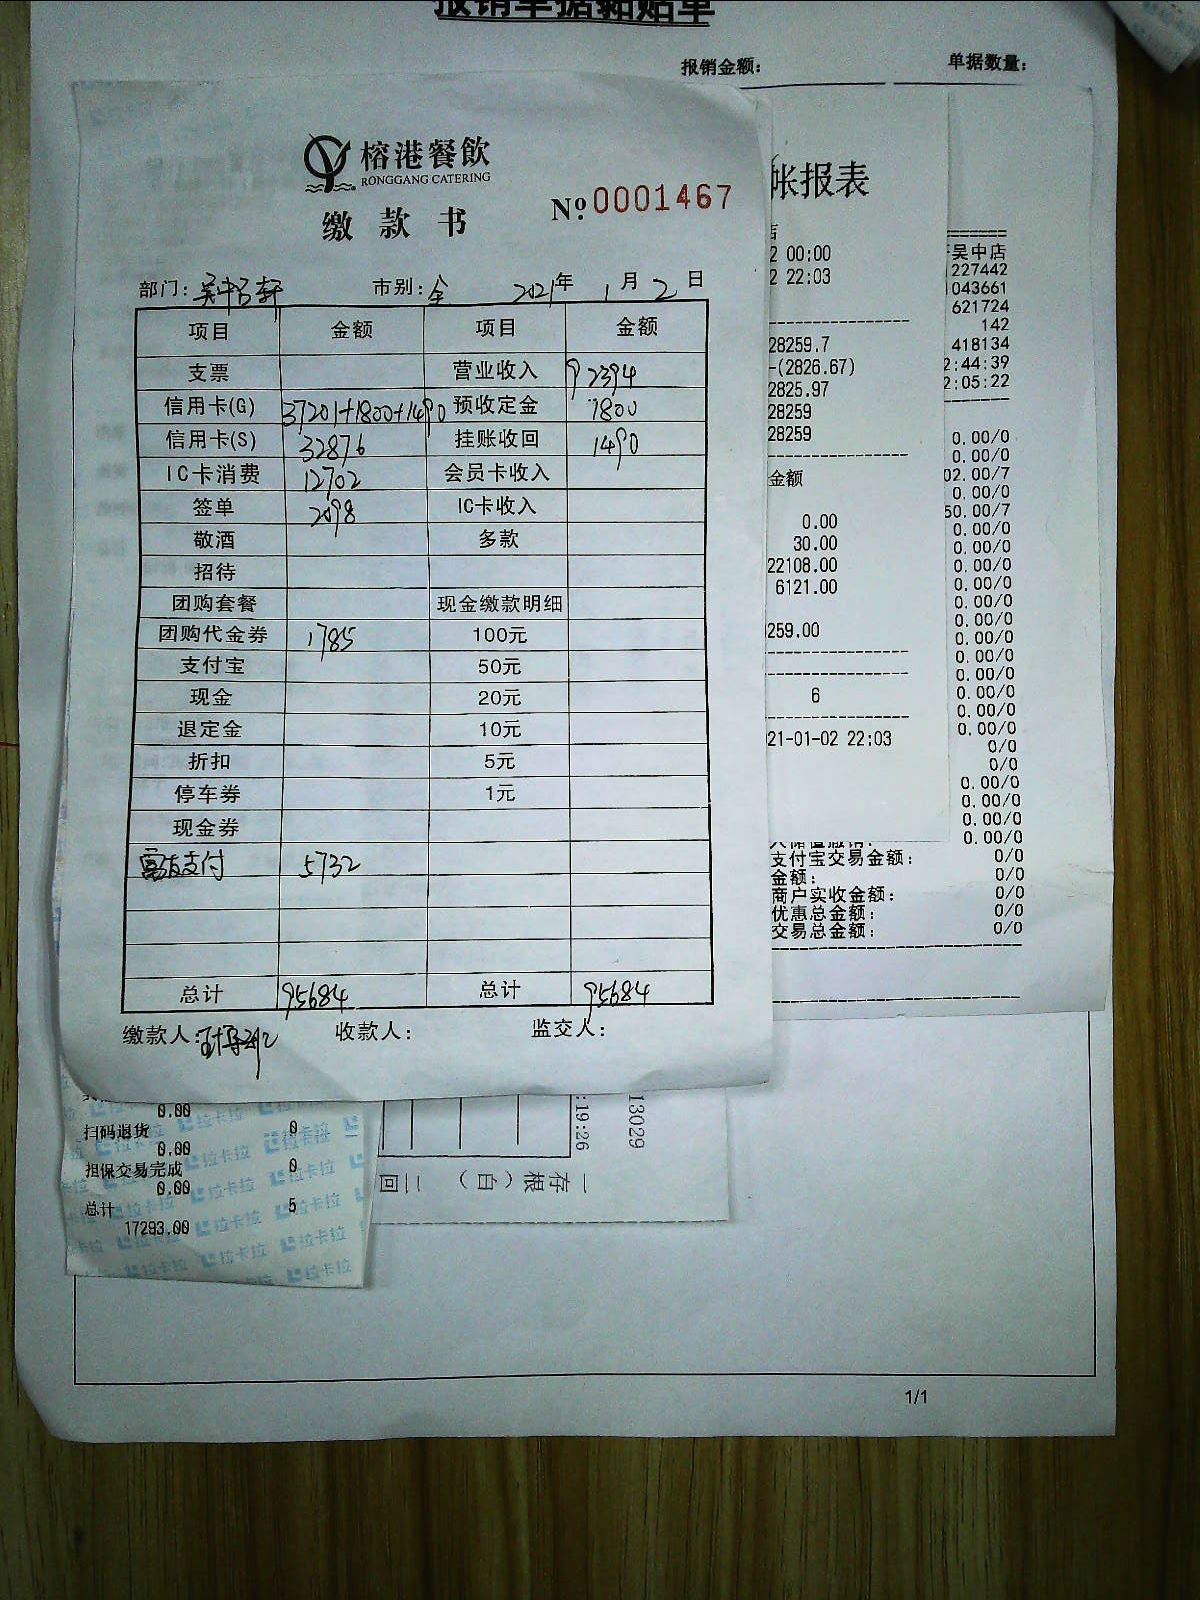 报销单据黏贴单
报销金额: 单据数量:
榕港餐飲
RONGGANG CATERING
缴款书 Nº 0001467
部门: 吴中 轩 市别: 全 2021年 1月 2日
项目 金额 项目 金额
支票 营业收入 92394
信用卡(G) 37201+1800+1490 预收定金 1800
信用卡(S) 32876 挂账收回 1490
IC卡消费 12702 会员卡收入
签单 2098 IC卡收入
敬酒 多款
招待
团购套餐 现金缴款明细
团购代金券 1785 100元
支付宝 50元
现金 20元
退定金 10元
折扣 5元
停车券 1元
现金券
支付 5732
总计 95684 总计 95684
缴款人: 收款人: 监交人:
帐报表
店
2 00:00
2 22:03
28259.7
-(2826.67)
2825.97
28259
28259
金额
0.00
30.00
22108.00
6121.00
259.00
6
21-01-02 22:03
吴中店
1227442
1043661
621724
142
418134
2:44:39
2:05:22
0.00/0
0.00/0
02.00/7
0.00/0
50.00/7
0.00/0
0.00/0
0.00/0
0.00/0
0.00/0
0.00/0
0.00/0
0.00/0
0.00/0
0.00/0
0.00/0
0.00/0
0/0
0/0
0.00/0
0.00/0
0.00/0
0.00/0
支付宝交易金额: 0/0
金额: 0/0
商户实收金额: 0/0
优惠总金额: 0/0
交易总金额: 0/0
0.00
扫码退货 0
0.00
担保交易完成 0
0.00
总计 5
17293.00
拉卡拉
:19:26
13029
一存根(白) 二回
1/1